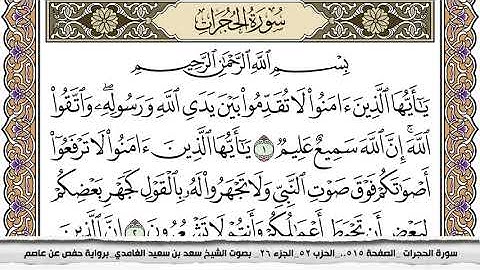 سُورَةُ الحُجُرَاتِ
بِسْمِ اللَّهِ الرَّحْمَٰنِ الرَّحِيمِ
يَٰٓأَيُّهَا الَّذِينَ ءَامَنُوا۟ لَا تُقَدِّمُوا۟ بَيْنَ يَدَىِ اللَّهِ وَرَسُولِهِۦ ۖ وَاتَّقُوا۟
اللَّهَ ۚ إِنَّ اللَّهَ سَمِيعٌ عَلِيمٌ ١ يَٰٓأَيُّهَا الَّذِينَ ءَامَنُوا۟ لَا تَرْفَعُوٓا۟
أَصْوَٰتَكُمْ فَوْقَ صَوْتِ النَّبِىِّ وَلَا تَجْهَرُوا۟ لَهُۥ بِالْقَوْلِ كَجَهْرِ بَعْضِكُمْ
لِبَعْضٍ أَن تَحْبَطَ أَعْمَٰلُكُمْ وَأَنتُمْ لَا تَشْعُرُونَ ٢ إِنَّ الَّذِينَ
سورة الحجرات _الصفحة ٥١٥،، الحزب ٥٢_الجزء ٢٦_ بصوت الشيخ سعد بن سعيد الغامدي_برواية حفص عن عاصم